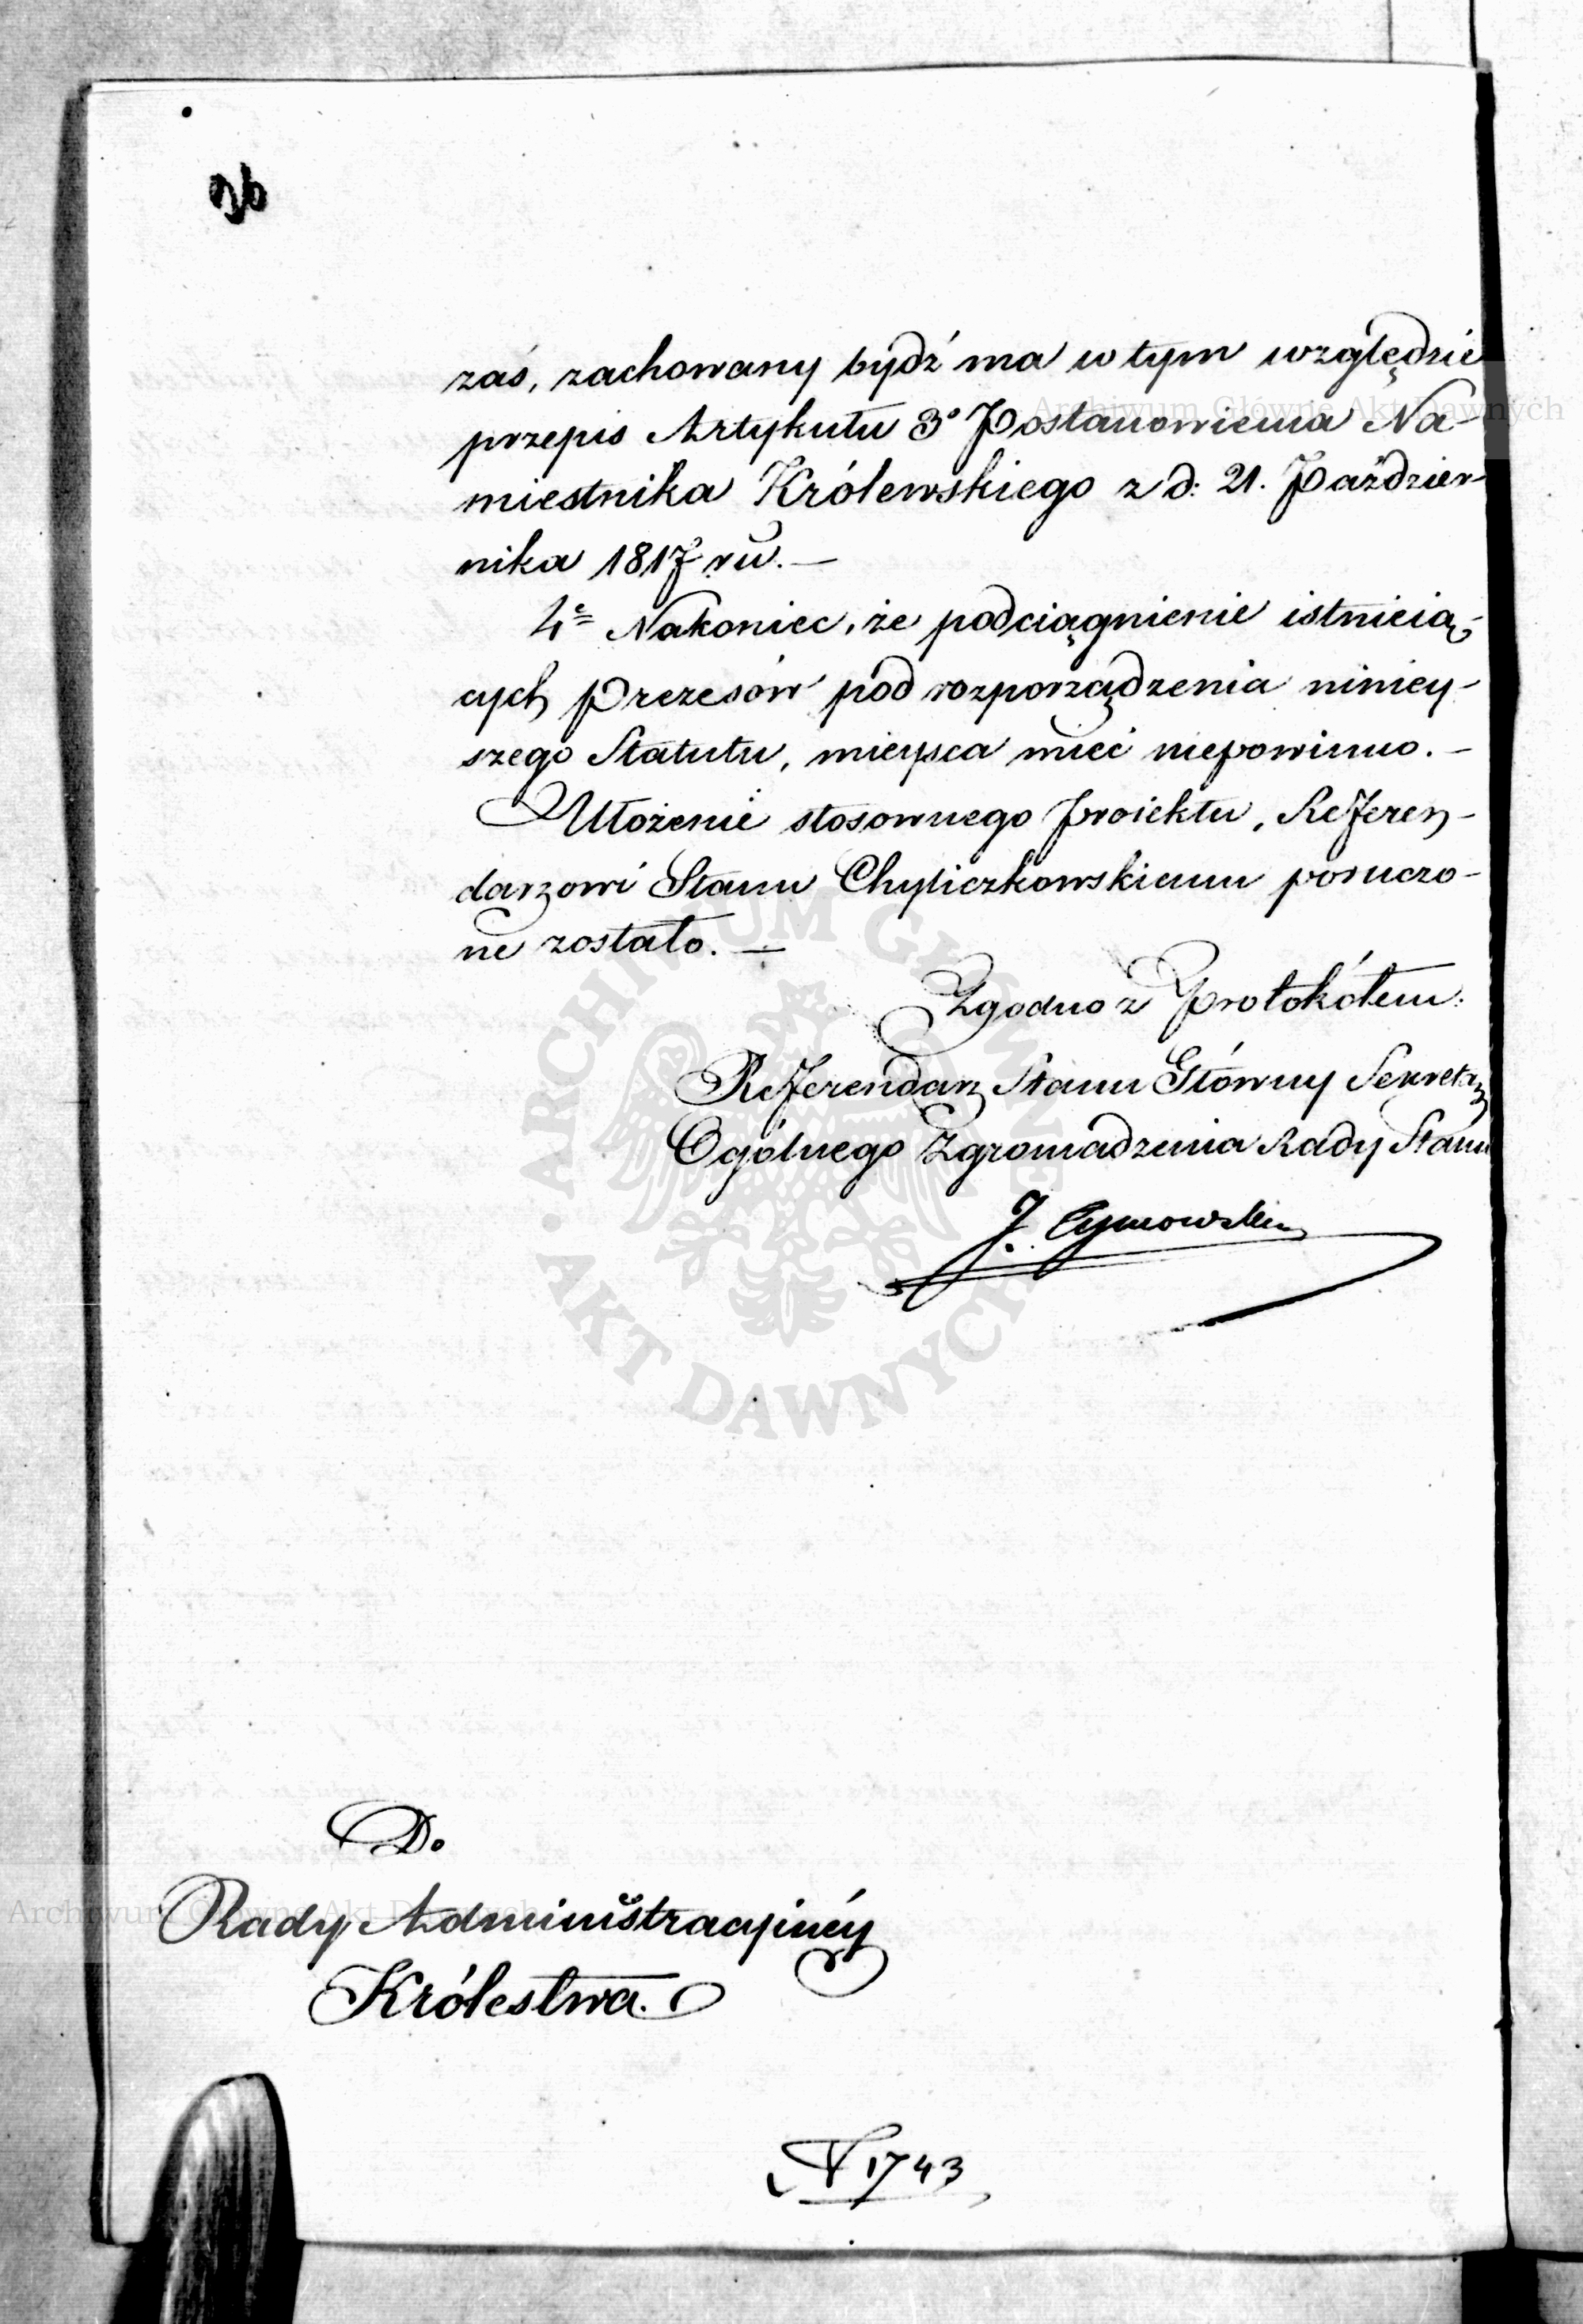 96
zaś, zachowany bydź ma w tym względzie
przepis Artykułu 3º Postanowienia Na-
miestnika Królewskiego z d: 21. Paździer-
nika 1817 ru. —
4e Nakoniec, że podciągnienie istnieią-
cych Prezesów pod rozporządzenia niniey-
szego Statutu, mieysca mieć niepowinno. —
Ułożenie stosownego Proiektu, Referen-
darzowi Stanu Chyliczkowskiemu poruczo-
ne zostało. —
Zgodno z Protokółem:
Referendarz Stanu Główny Sekretarz
Ogólnego Zgromadzenia Rady Stanu
J. Tymowski
Do
Rady Administracyinéy
Królestwa.
N 1743
Archiwum Główne Akt Dawnych
ARCHIWUM GŁÓWNE • AKT DAWNYCH •
Archiwum Główne Akt Dawnych